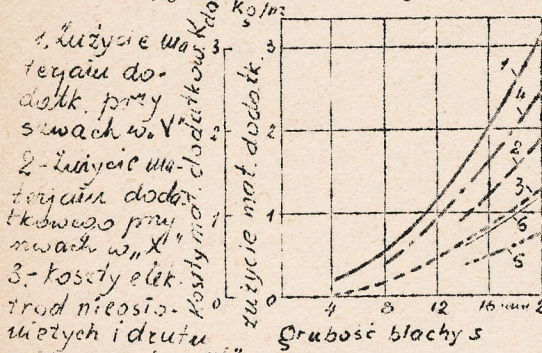 1. Zużycie ma
terjału do-
datk. przy
szwach w „V"
2 - Zużycie ma-
terjału doda
tkowego przy
szwach w „X"
3. - Koszty elek
trod nieosło-
niętych i drutu
Koszty mat. dodatkow.
zużycie mat. dodatk.
3
2
1
0
3
2
1
0
1
4
2
3
6
5
4
8
12
16 mm
2
Grubość blachy s